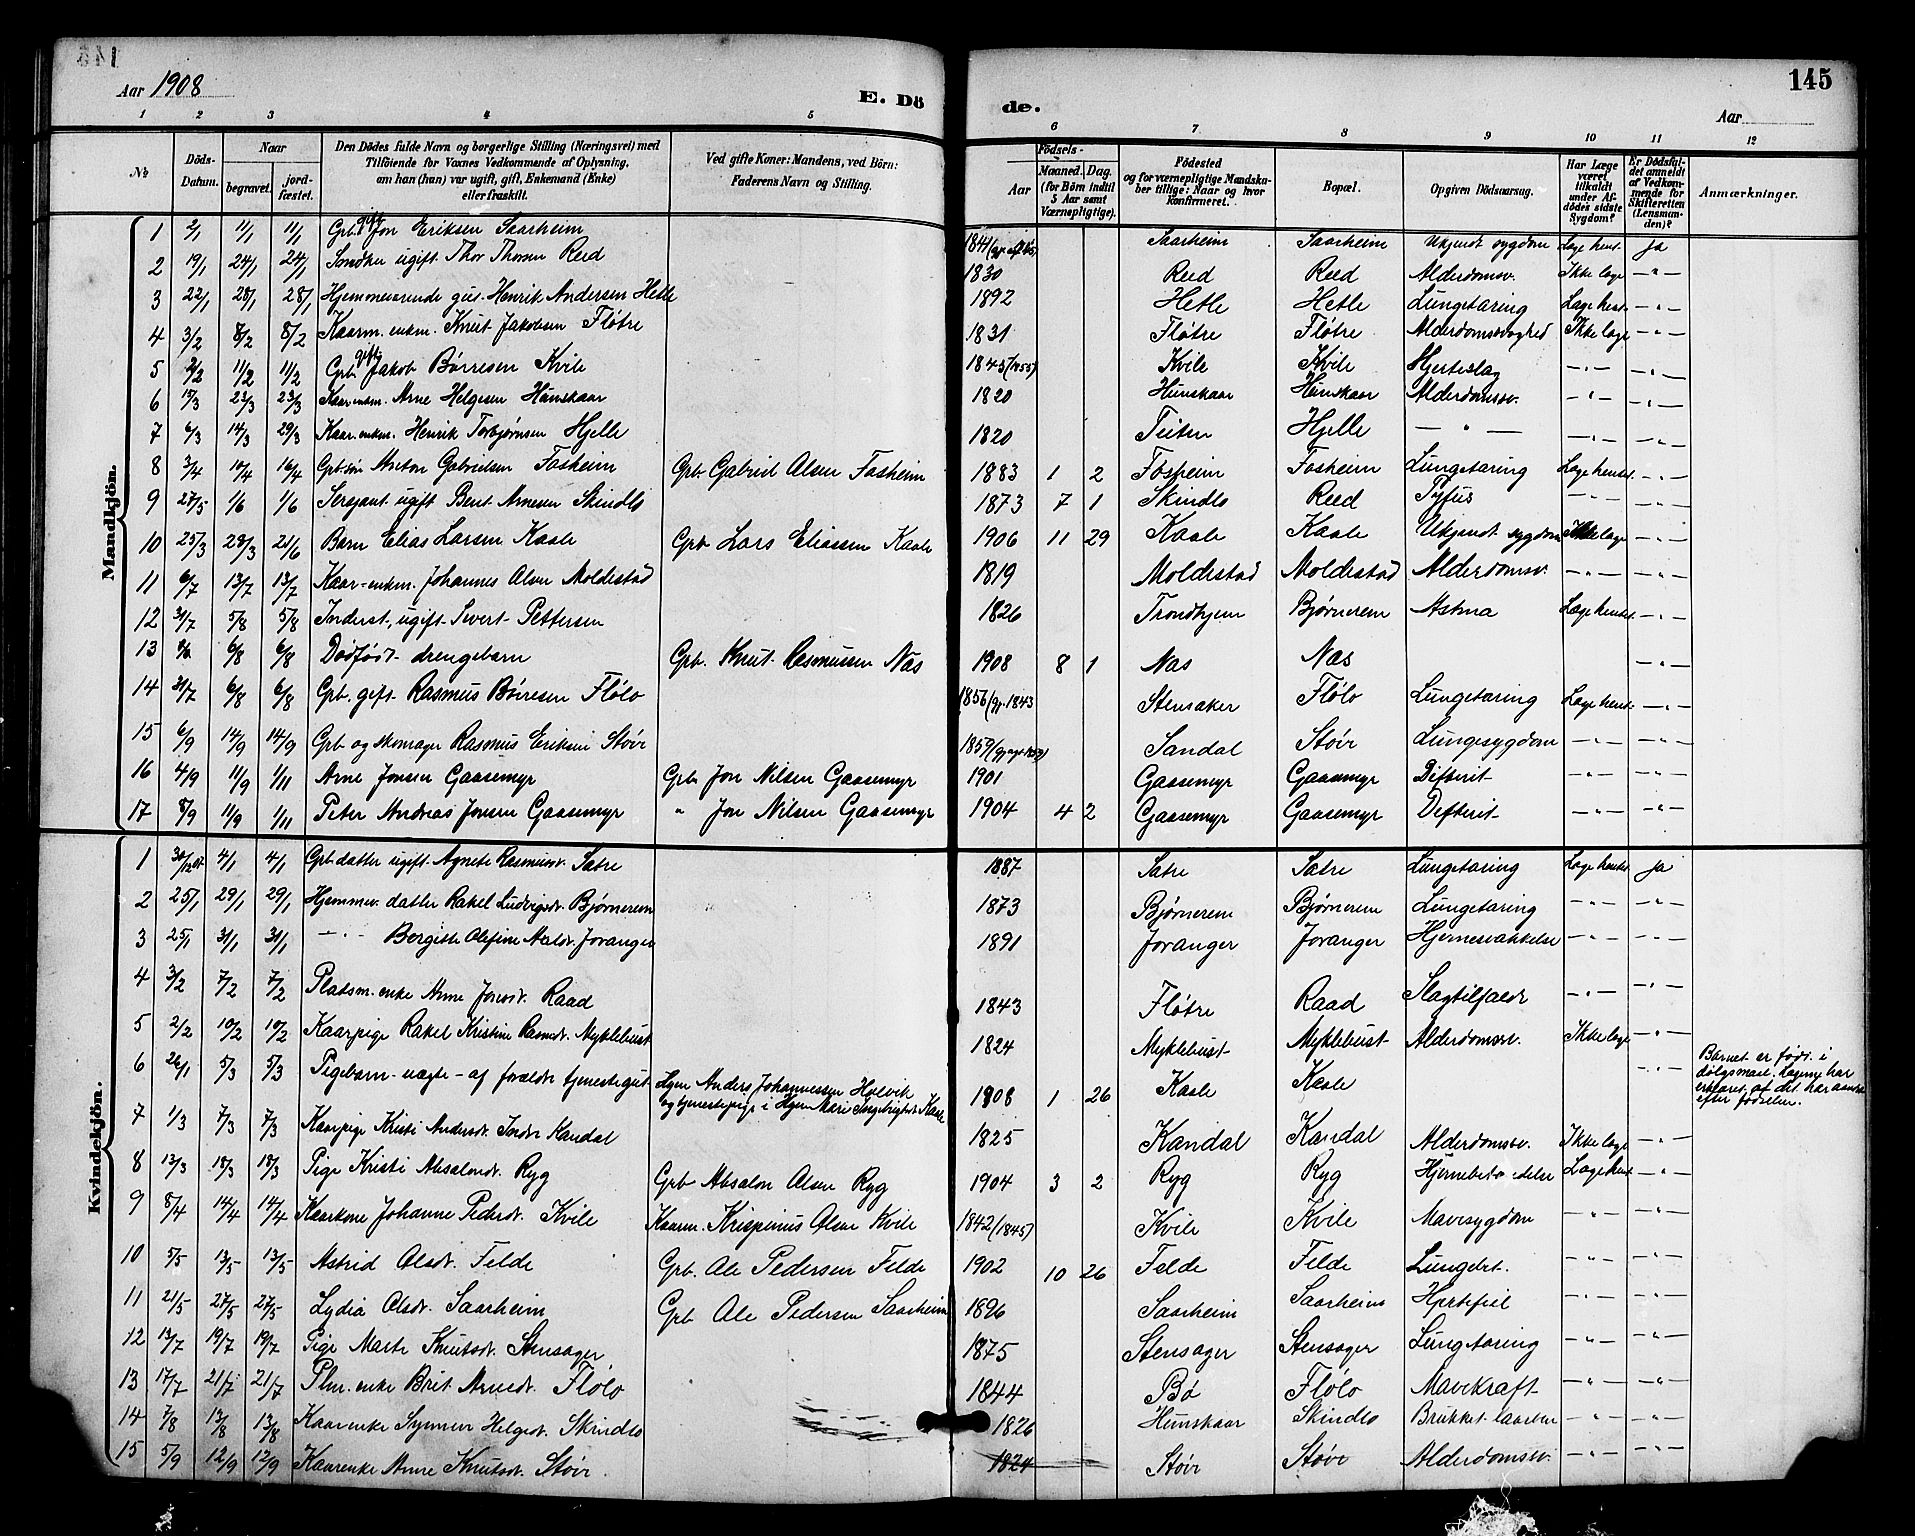 145
Aar 1908
E. Dö
de.
Aar
1 2 3 4 5 6 7 8 9 10 11 12
No
Döds-Datum.
Naar
begravet.
jordfæstet.
Den Dödes fulde Navn og borgerlige Stilling (Næringsvei) med
Tilföiende for Voxnes Vedkommende af Oplysning,
om han (hun) var ugift, gift, Enkemand (Enke)
eller fraskilt.
Ved gifte Koner: Mandens, ved Börn:
Faderens Navn og Stilling.
Födsels-
Aar
Maaned. Dag.
(for Börn indtil
5 Aar samt
Værnepligtige).
Födested
og for værnepligtige Mandska-
ber tillige: Naar og hvor
konfirmeret.
Bopæl.
Opgiven Dödsaarsag.
Har Læge
været
tilkaldt
under Af-
dödes sidste
Sygdom?
Er Dödsfal-
det anmeldt
af Vedkom-
mende for
Skifteretten
(Lensman-
den)?
Anmærkninger.
Mandkjön.
1 2/1 11/1 11/1 Grb. gift Jon Eriksen Saarheim 1841 Saarheim Saarheim Ukjendt sygdom Læge hent. ja
2 19/1 24/1 24/1 ugift Thor Thorsen Reed 1830 Reed Reed Alderdomsv. Ikke læge — " —
3 22/1 28/1 28/1 Hjemmeværende gut Henrik Andersen Hetle 1892 Hetle Hetle Lungetæring Læge hent — " —
4 3/2 8/2 8/2 Kaarm. enkm. Knut Jakobsen Fløtre 1831 Fløtre Fløtre Alderdomssvaghed Ikke læge — " —
5 2/2 11/2 11/2 Grb. gift Jakob Børresen Kvile 1845 (1855) Kvile Kvile Hjerteslag — " — — " —
6 15/3 23/3 23/3 Kaar enkm. Arne Helgesen Hunskaar 1820 Hunskaar Hunskaar Alderdomssv. — " — — " —
7 6/3 14/3 29/3 Kaar. enkm. Henrik Torbjørnsen Hjelle 1820 Teiten Hjelle — " — — " — — " —
8 3/4 10/4 16/4 Grb. søn Anton Gabrielsen Fosheim Grb. Gabriel Olsen Fosheim 1883 1 2 Fosheim Fosheim Lungetæring Læge hentet — " —
9 27/5 1/6 1/6 Sersjant ugift Bent Arnesen Skindlo 1873 7 1 Skindlo Reed Tyfus — " — — " —
10 25/3 28/3 21/6 Barn Elias Larsen Kaale Grb Lars Eliassen Kaale 1906 11 29 Kaale Kaale Ukjendt sygdom Ikke læge — " —
11 6/7 13/7 13/7 Kaar-enkm. Johannes Olsen Moldestad 1819 Moldestad Moldestad Alderdomsv. — " — — " —
12 31/7 5/8 5/8 Inderst, ugift Sivert Pettersen 1826 Trondhjem Bjørnerem Astma Læge hentet — " —
13 6/8 6/8 Dødfødt drengebarn Grb. Knut Rasmussen Nas 1908 8 1 Nas Nas — " —
14 31/7 6/8 6/8 Grb. gift Rasmus Børresen FløLo 1856 (gr. 1843 Stensaker Flølo Lungetæring Læge hent. — " —
15 6/9 14/9 14/9 Grb og skomager Rasmus Eriksen Støve 1859 Sandal Støve Lungesygdom — " — — " —
16 4/9 11/9 1/11 Arne Jonsen Gaasemyr Grb. Jon Nilsen Gaasemyr 1901 Gaasemyr Gaasemyr Difterit — " — — " —
17 8/9 11/9 1/11 Peter Andreas Jonsen Gaasemyr " Jon Nilsen Gaasemyr 1904 4 2 Gaasemyr Gaasemyr Defterit — " — — " —
Kvindekjön.
1 30/12 07 4/1 4/1 Grb datter ugift Agnete Rasmusd. Sætre 1887 Sætre Sætre Lungetæring Læge hentet ja
2 25/1 29/1 29/1 Hjemmev. datter Rakel Ludvigsdt. Bjørnerem 1873 Bjørnerem Bjørnerem Lungetæring — " — — " —
3 25/1 31/1 31/1 — " — Bergitte Olefine Jovanger 1891 Joranger Joranger — " — — " —
4 3/2 7/2 7/2 Pladsm. enke Anne Jonsdt. Raad 1843 Fløtre Raad Slagtilfælde — " — — " —
5 2/2 10/2 10/2 Kaarpige Rakel Kristine Rasmdt. Myklebust 1824 Myklebust Myklebust Alderdomssv. Ikke læge — " —
6 26/1 5/3 5/3 Pigebarn uægte af foræld. tjenestegut Anders Johannessen Holvik
og tjenestepige i Hyen Mari Ingebrigtsdt. Kaale 1908 1 26 Kaale Kaale — " — Barnet er født i
dølgsmaal. Lægen har
erklæret, at det har aandet
efter fødselen.
7 1/3 7/3 7/3 Kaarpige Kristi Andersdt. Indre Kandal 1825 Kandal Kandal Alderdomssv. Ikke læge — " —
8 13/3 18/3 18/3 Pige Kristi Absalonsdt. Ryg Grb Absalon Olsen Ryg 1904 3 2 Ryg Ryg Læge hent — " —
9 8/4 14/4 14/4 Kaarkone Johanne Pedersdt. Kvile Kaarm. Krispinus Olsen Kvile 1842 (1845) Kvile Kvile Mavesygdom — " — — " —
10 5/5 13/5 13/5 Astrid Olsdt. Felde Grb. Ole Pedersen Felde 1902 10 26 Felde Felde Lungebet. — " — — " —
11 21/5 27/5 27/5 Lydia Olsdt. Saarheim Grb Ole Pedersen Saarheim 1896 Saarheim Saarheim Hjertefeil — " — — " —
12 13/7 19/7 19/7 Pige Marte Knutsdt. Stensager 1875 Stensager Stensager Lungetæring — " — — " —
13 17/7 21/7 21/7 Plm. enke Brit Arnedt. Flølo 1844 Bø Flølo Mavekræft — " — — " —
14 7/8 13/8 13/8 Kaarenke Synneve Helgesdt. Skindlo 1826 Hunskaar Skindlo Brukket laarben — " — — " —
15 5/9 12/9 12/9 Kaarenke Anne Knutsdt. Støve 1824 Støve Støve Alderdomssv. — " — — " —